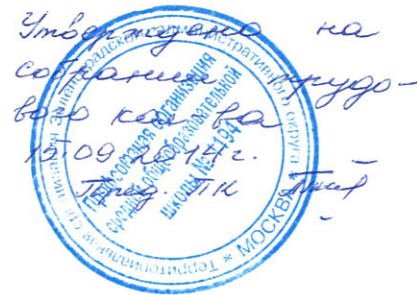 Утверждено на
собрании трудо-
вого кол-ва
15.09.2014г.
Пред. ПК
Территориальная Зеленоградского административного округа * МОСКВА *
Профсоюзная организация
средней общеобразовательной
школы №